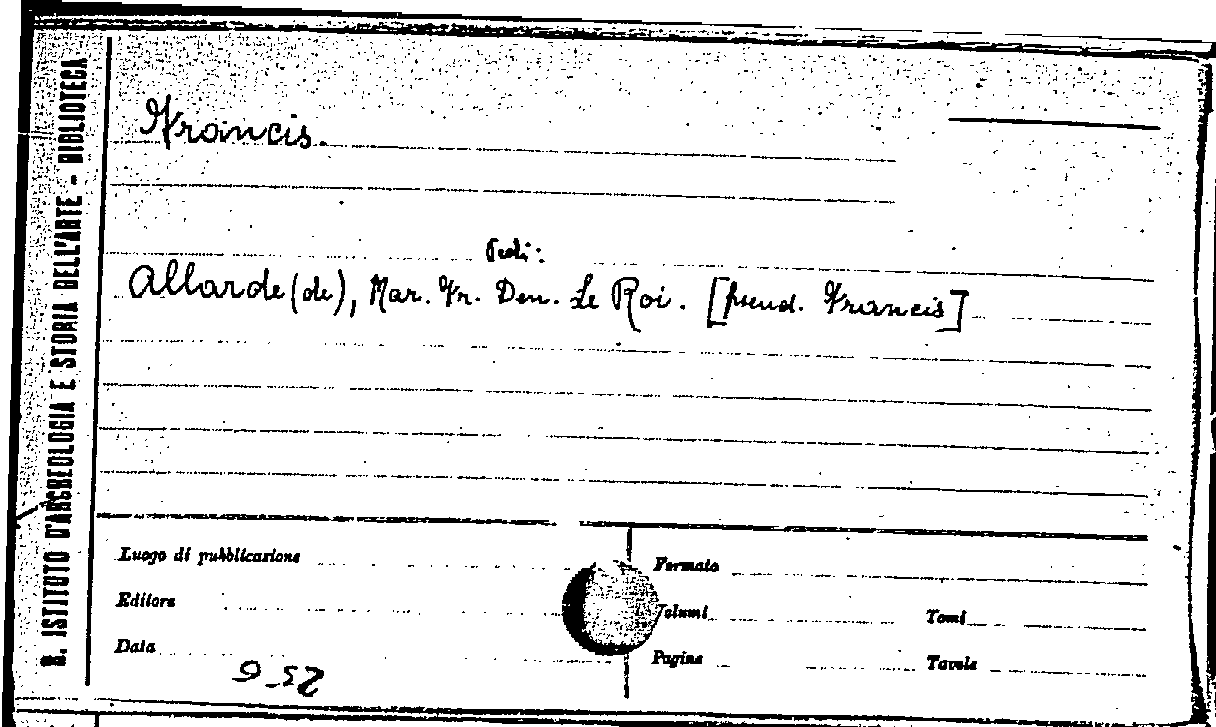 R. ISTITUTO D'ARCHEOLOGIA E STORIA DELL'ARTE - BIBLIOTECA
Francis.
Vedi:
Allarde (de), Mar. Fr. Den. Le Roi. [pseud. Francis]
Luogo di pubblicazione
Formato
Editore
Volumi
Tomi
Data
Pagine
Tavole